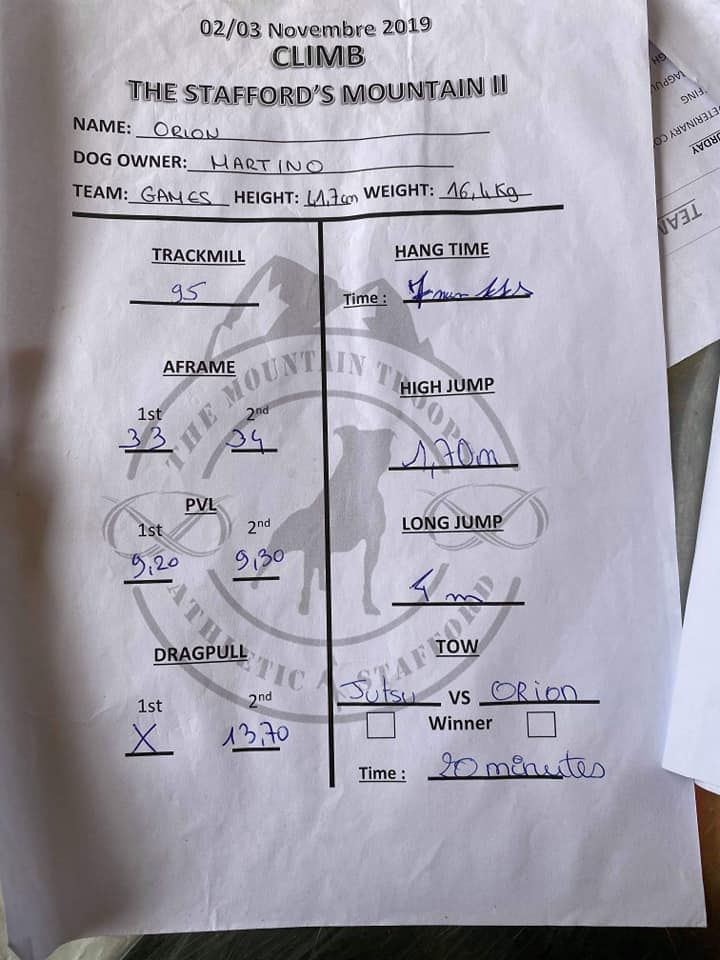 02/03 Novembre 2019
CLIMB
THE STAFFORD'S MOUNTAIN II
NAME: ORION
DOG OWNER: MARTINO
TEAM: GAMES HEIGHT: 41.7cm WEIGHT: 16,4Kg
TRACKMILL
95
AFRAME
1st 2nd
33 34
PVL
1st 2nd
9,20 9,30
DRAGPULL
1st 2nd
X 13,70
HANG TIME
Time :
HIGH JUMP
1,70m
LONG JUMP
4 m
TOW
Jutsu VS ORion
Winner
Time : 20 minutes
THE MOUNTAIN TROOP
ATHLETIC STAFFORD
VETERINARY
TEAM